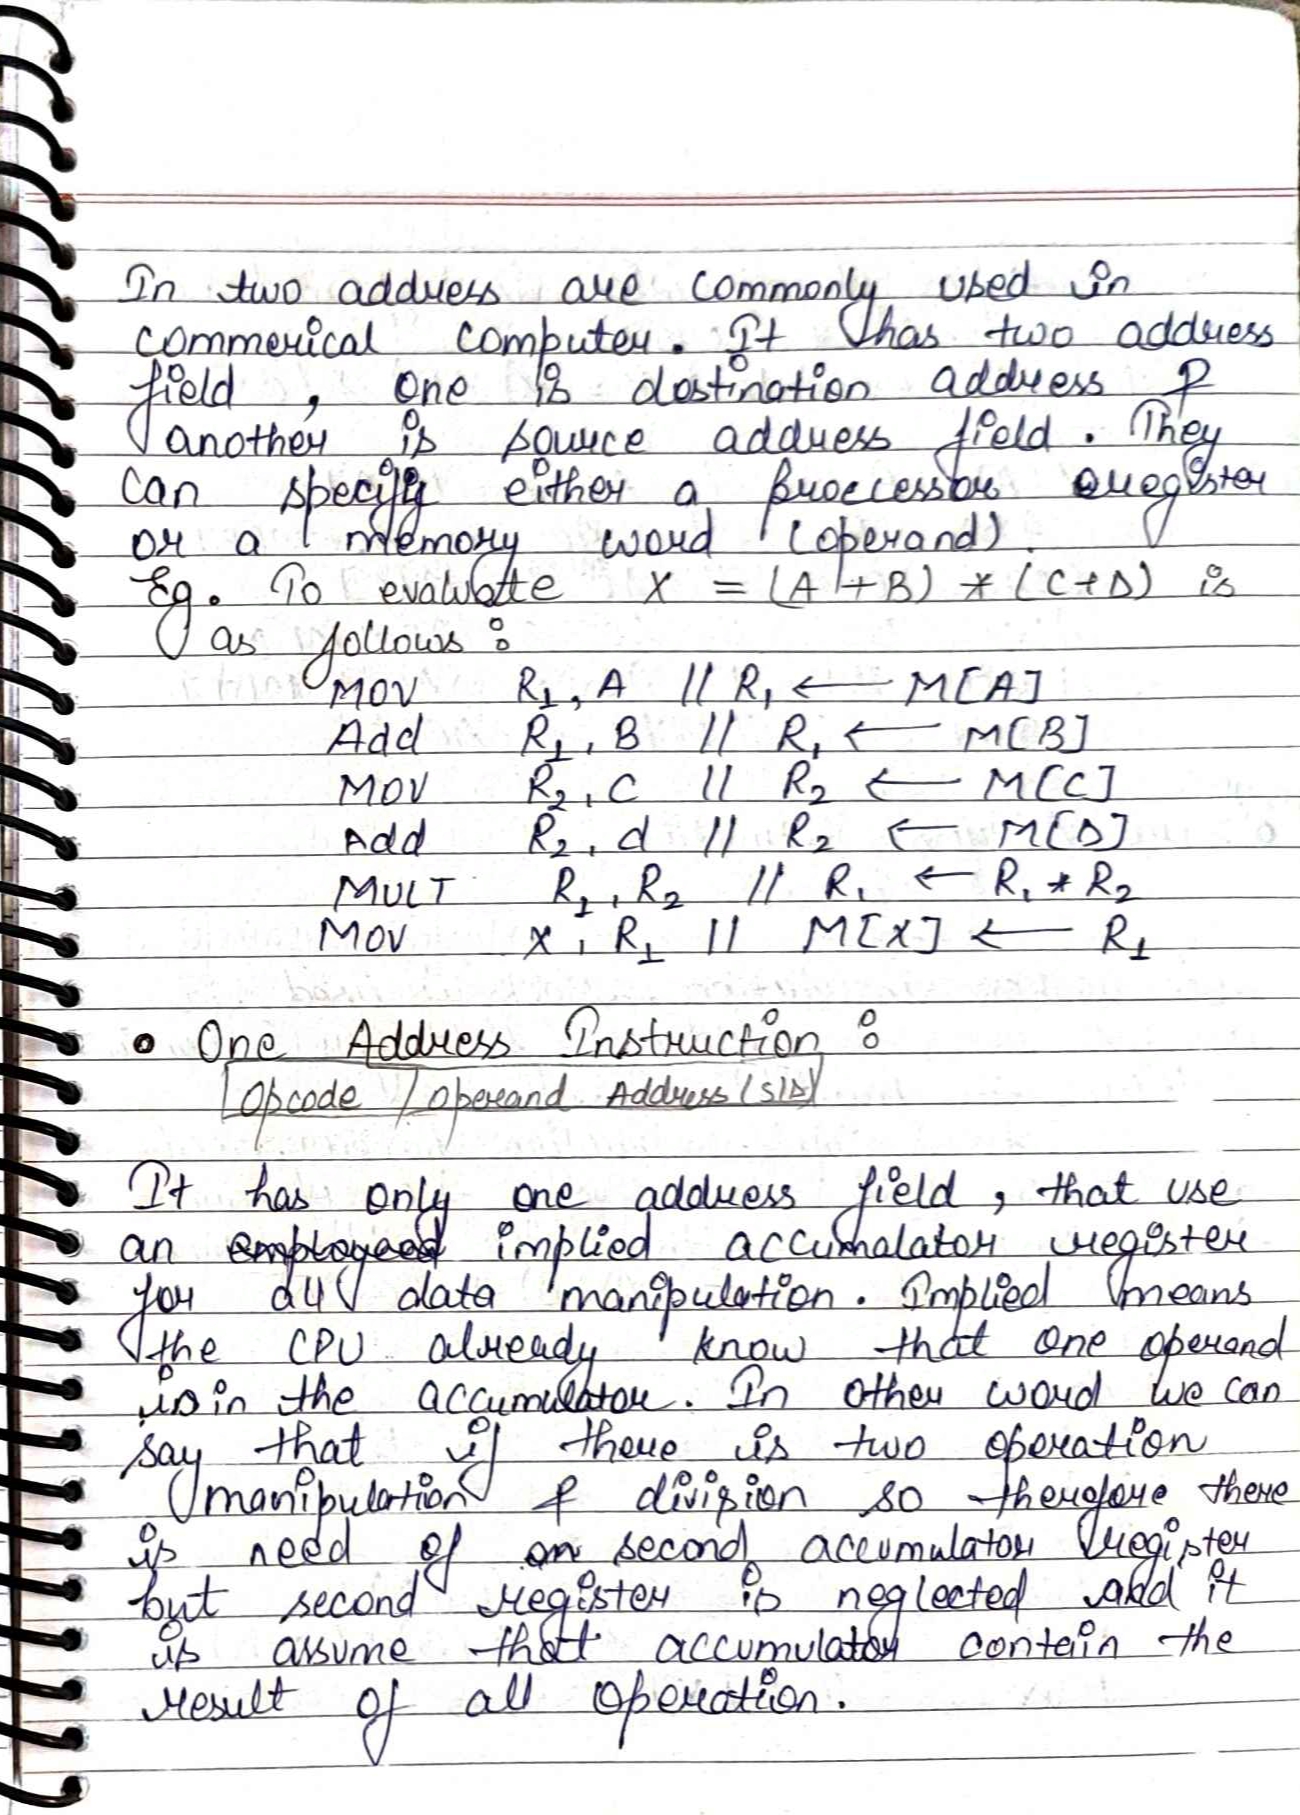 In two address are commonly used in
commerical computer. It has two address
field, one is dostination address &
another is source address field. They
can specify either a proccessor register
or a memory word (operand).
Eg. To evaluate X = (A+B) * (C+D) is
as follows :
MOV R1, A // R1 ← M[A]
Add R1, B // R1 ← M[B]
MOV R2, C // R2 ← M[C]
Add R2, d // R2 ← M[D]
MULT R1, R2 // R1 ← R1 * R2
MOV X, R1 // M[X] ← R1
• One Address Instruction :
Opcode / operand Address (S/D)
It has only one address field, that use
an implied accumalator register
for all data manipulation. Implied means
the CPU already know that one operand
is in the accumulator. In other word we can
say that if there is two operation
manipulation & division so therefore there
is need of an second accumulator register
but second register is neglected and it
is assume that accumulator contain the
result of all operation.